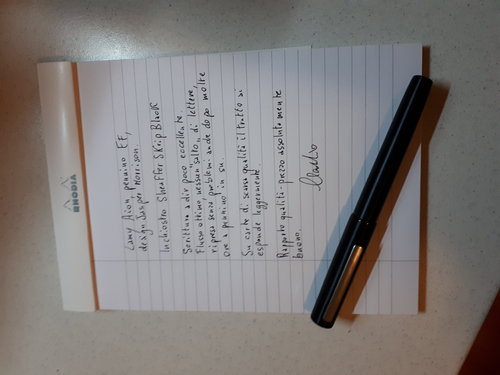 RHODIA
Lamy Aion pennino EF,
design Jasper Morrison.
Inchiostro Sheaffer SKrip Black
Scrittura a dir poco eccellente.
Flusso ottimo, nessun "salto" di lettere,
ripresa senza problemi anche dopo molte
ore a pennino in su.
Su carte di scarsa qualità il tratto si
espande leggermente.
Rapporto qualità-prezzo assolutamente
buono.